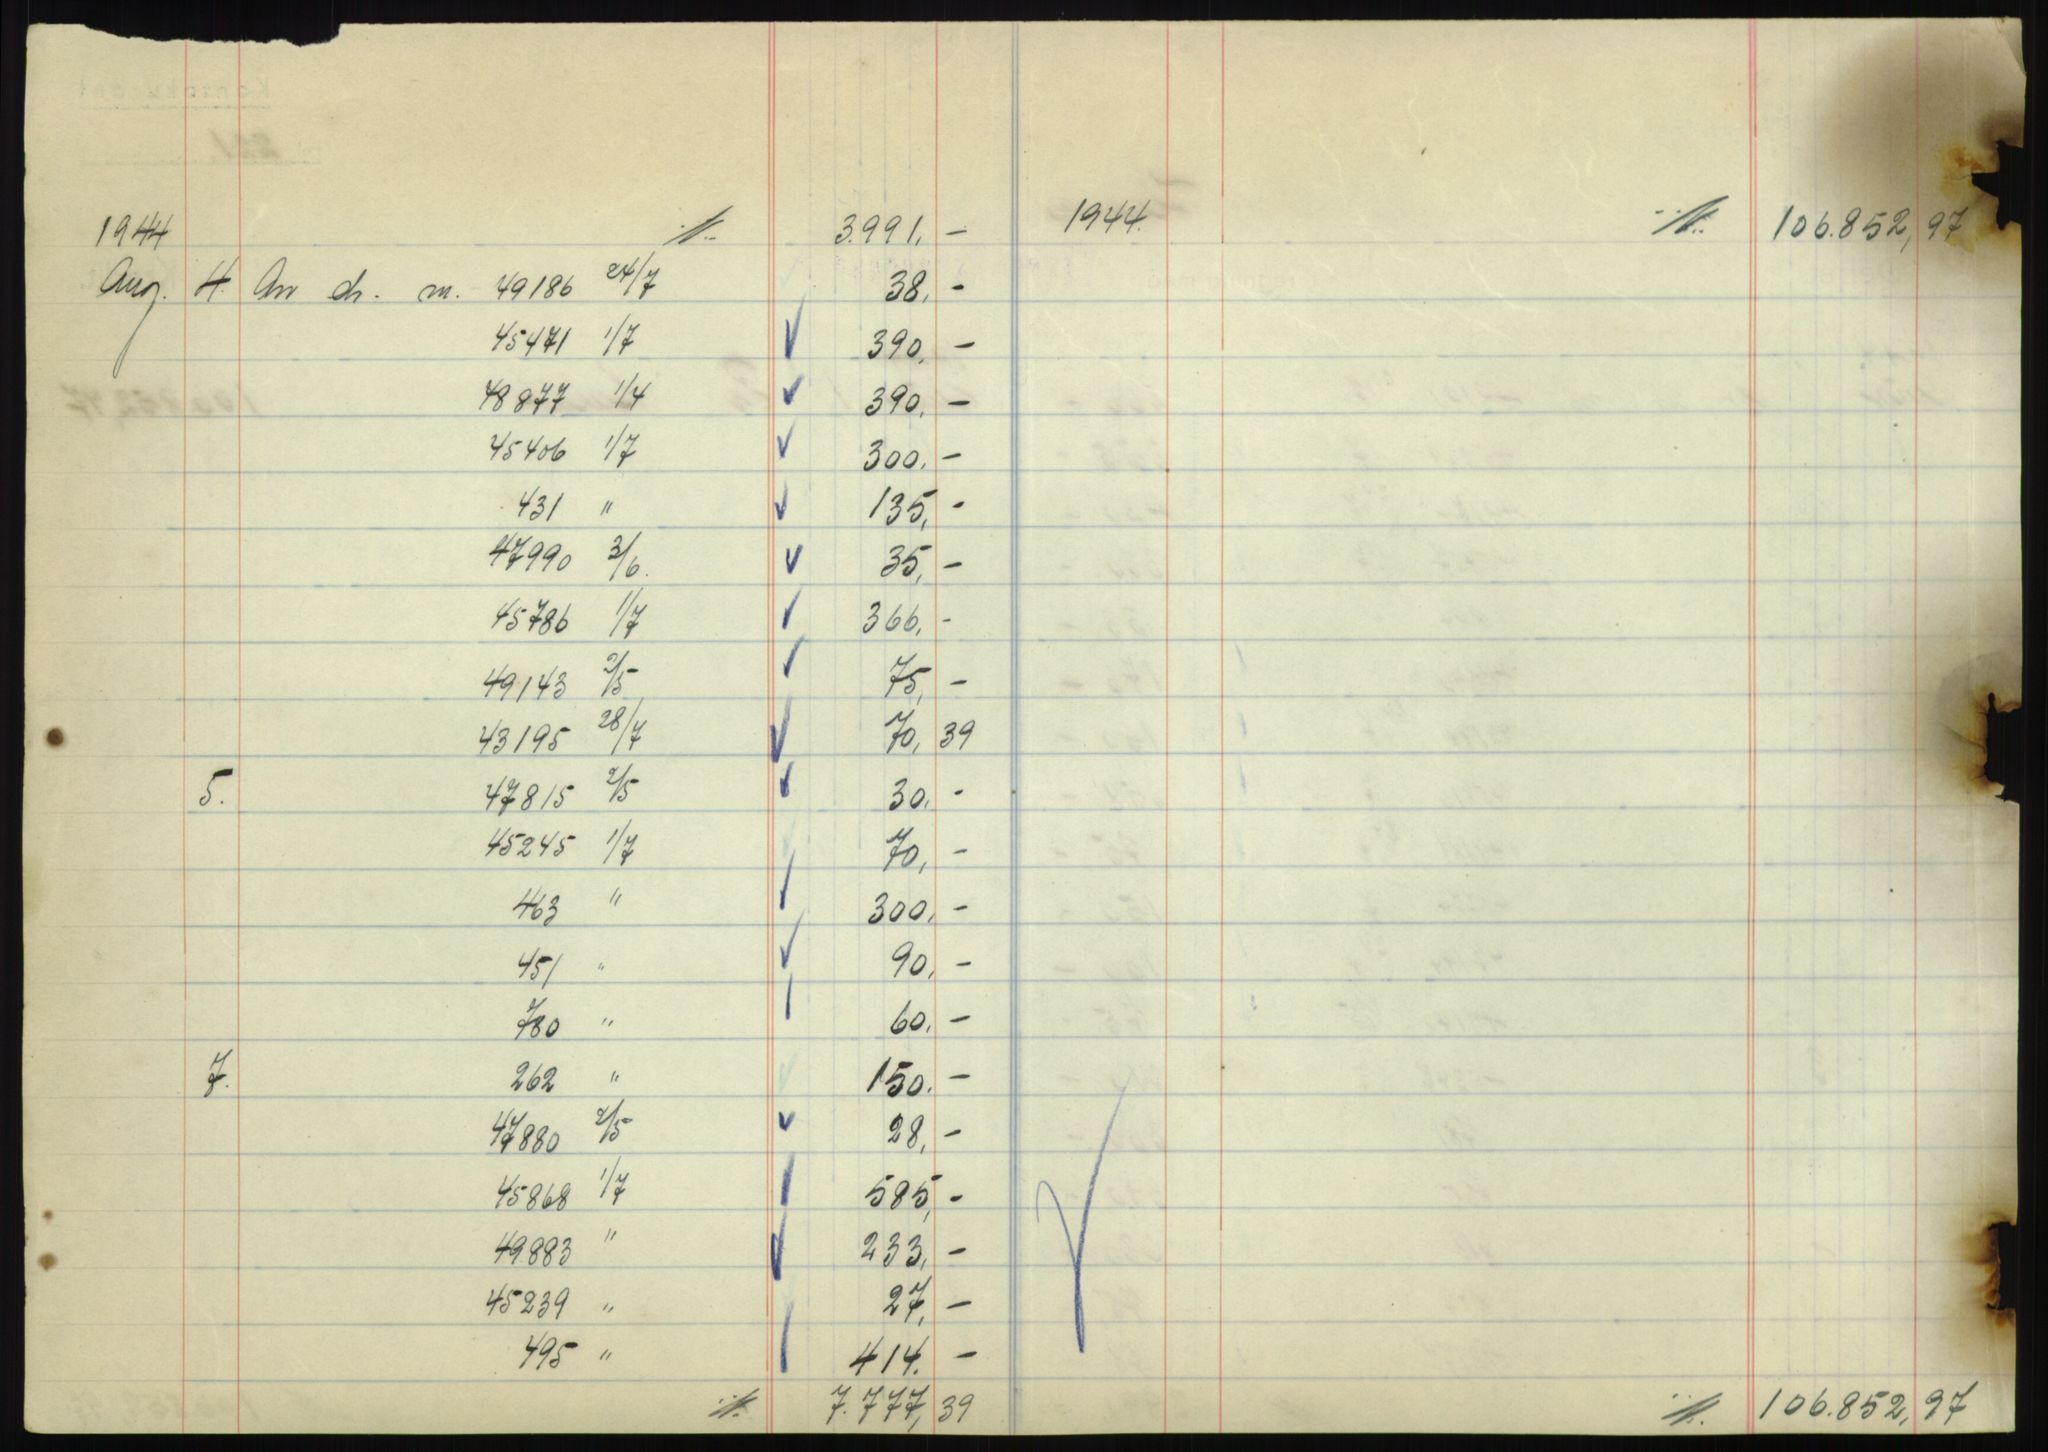 1944 ·/. 3.991,-
Aug. 4. An ch. m. 49186 24/7 38,-
45471 1/7 390,-
48877 1/4 390,-
45406 1/7 300,-
431 " 135,-
47990 3/6. 35,-
45786 1/7 366,-
49143 2/5 75,-
43195 28/7 70,39
5. 47815 2/5 30,-
45245 1/7 70,-
463 " 300,-
451 " 90,-
780 " 60,-
7. 262 " 150.-
47880 2/5 28,-
45868 1/7 585,-
49883 " 233,-
45239 " 27,-
495 " 414.-
·/. 7.777,39
1944. ·/. 106.852,97
·/. 106.852,97